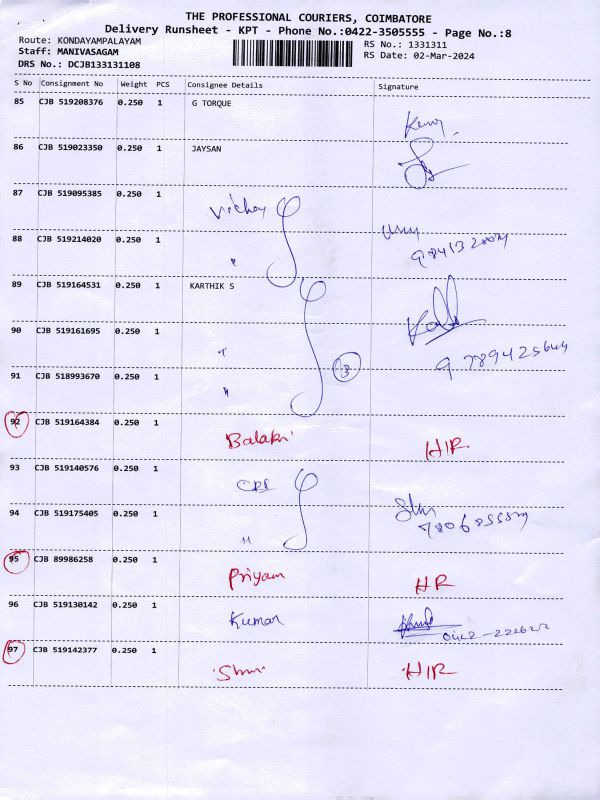 THE PROFESSIONAL COURIERS, COIMBATORE
Delivery Runsheet - KPT - Phone No.:0422-3505555 - Page No.:8
Route: KONDAYAMPALAYAM
RS No.: 1331311
Staff: MANIVASAGAM
RS Date: 02-Mar-2024
DRS No.: DCJB133131108
S No Consignment No Weight PCS Consignee Details Signature
85 CJB 519208376 0.250 1 G TORQUE
86 CJB 519023350 0.250 1 JAYSAN
87 CJB 519095385 0.250 1
88 CJB 519214020 0.250 1 "
89 CJB 519164531 0.250 1 KARTHIK S
90 CJB 519161695 0.250 1 "
3
91 CJB 518993670 0.250 1 "
92 CJB 519164384 0.250 1 Balakri HIR
93 CJB 519140576 0.250 1
94 CJB 519175405 0.250 1 "
95 CJB 89986258 0.250 1 Priyam HR
96 CJB 519130142 0.250 1 Kumar
97 CJB 519142377 0.250 1 HIR